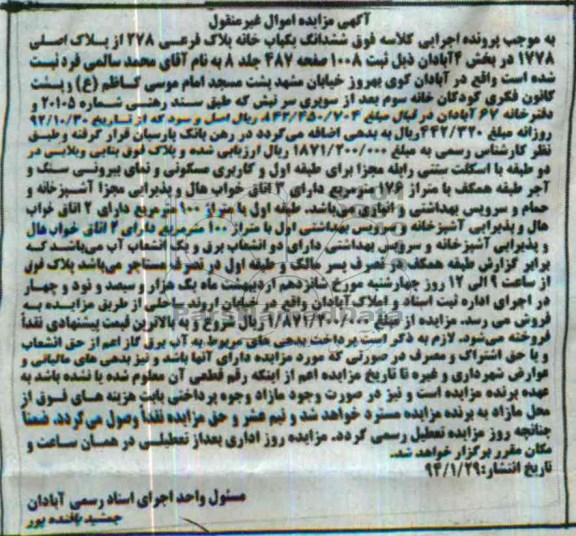 آگهی مزایده اموال غیرمنقول
به موجب پرونده اجرایی کلاسه فوق ششدانگ یکباب خانه پلاک فرعی ۲۷۸ از پلاک اصلی
۱۷۷۸ در بخش ۴ آبادان ذیل ثبت ۱۰۰۸ صفحه ۴۸۷ جلد ۸ به نام آقای محمد سالمی فرد ثبت
شده است واقع در آبادان کوی بهروز خیابان مشهد پشت مسجد امام موسی کاظم (ع) و پشت
کانون فکری کودکان خانه سوم بعد از سوپری سر نبش که طبق سند رهنی شماره ۲۰۱۰۵ و
دفترخانه ۶۷ آبادان در قبال مبلغ ۸۴۲/۴۵۰/۷۰۴ ریال اصل و سود که از تاریخ ۹۲/۱۰/۳۰
روزانه مبلغ ۴۴۲/۳۲۰ ریال به بدهی اضافه می‌گردد در رهن بانک پارسیان قرار گرفته و طبق
نظر کارشناس رسمی به مبلغ ۱۸۷۱/۲۰۰/۰۰۰ ریال ارزیابی شده و پلاک فوق بنایی ویلایی در
دو طبقه با اسکلت سنتی راپله مجزا برای طبقه اول و کاربری مسکونی و نمای بیرونی سنگ و
آجر طبقه همکف با متراژ ۱۷۶ مترمربع دارای ۳ اتاق خواب هال و پذیرایی مجزا آشپزخانه و
حمام و سرویس بهداشتی و انباری می‌باشد. طبقه اول با متراژ ۱۰۰ مترمربع دارای ۲ اتاق خواب
هال و پذیرایی آشپزخانه و سرویس بهداشتی اول با متراژ ۱۰۰ مترمربع دارای ۲ اتاق خواب هال
و پذیرایی آشپزخانه و سرویس بهداشتی دارای دو انشعاب برق و یک انشعاب آب می‌باشد که
برابر گزارش طبقه همکف در تصرف پسر مالک و طبقه اول در تصرف مستاجر می‌باشد پلاک فوق
از ساعت ۹ الی ۱۲ روز چهارشنبه مورخ شانزدهم اردیبهشت ماه یک هزار و سیصد و نود و چهار
در اجرای اداره ثبت اسناد و املاک آبادان واقع در خیابان اروند ساحلی از طریق مزایده به
فروش می رسد. مزایده از مبلغ ۱/۸۷۱/۲۰۰/۰۰۰ ریال شروع و به بالاترین قیمت پیشنهادی نقداً
فروخته می‌شود. لازم به ذکر است پرداخت بدهی های مربوط به آب برق گاز اعم از حق انشعاب
و یا حق اشتراک و مصرف در صورتی که مورد مزایده دارای آنها باشد و نیز بدهی های مالیاتی و
عوارض شهرداری و غیره تا تاریخ مزایده اعم از اینکه رقم قطعی آن معلوم شده یا نشده باشد به
عهده برنده مزایده است و نیز در صورت وجود مازاد وجوه پرداختی بابت هزینه های فوق از
محل مازاد به برنده مزایده مسترد خواهد شد و نیم عشر و حق مزایده نقداً وصول می‌گردد. ضمناً
چنانچه روز مزایده تعطیل رسمی گردد. مزایده روز اداری بعد از تعطیلی در همان ساعت و
مکان مقرر برگزار خواهد شد.
تاریخ انتشار: ۹۴/۱/۲۹
مسئول واحد اجرای اسناد رسمی آبادان
جمشید بافنده پور
ParsNamadData